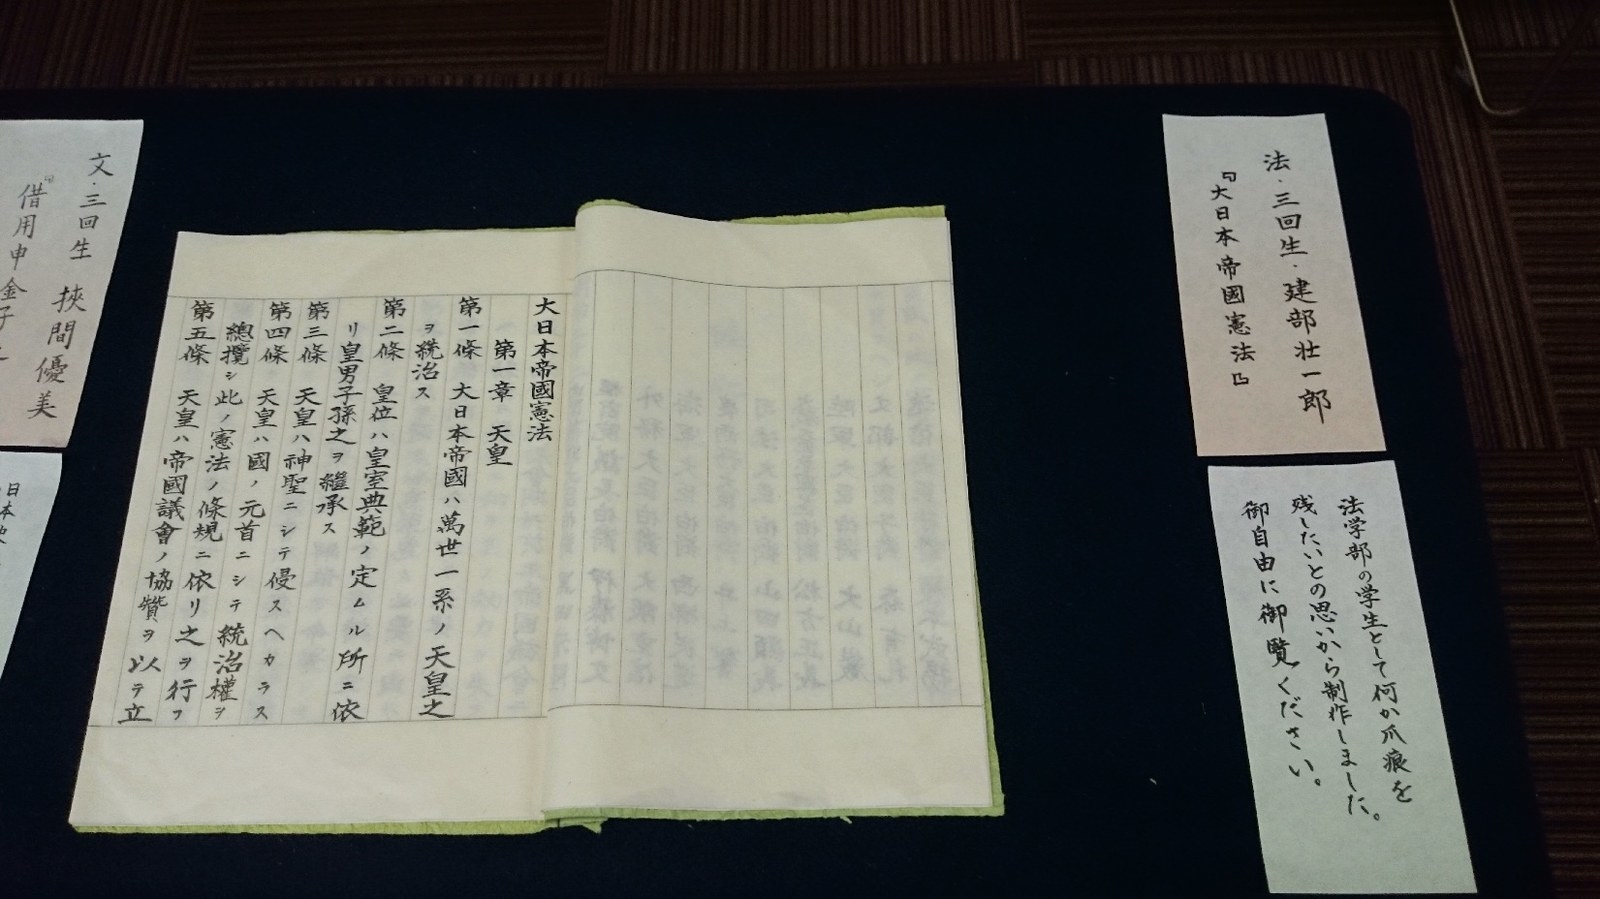 法・三回生・建部壮一郎
『大日本帝國憲法』
法学部の学生として何か爪痕を
残したいとの思いから制作しました。
御自由に御覧ください。
大日本帝國憲法
第一章 天皇
第一條 大日本帝國ハ萬世一系ノ天皇之
ヲ統治ス
第二條 皇位ハ皇室典範ノ定ムル所ニ依
リ皇男子孫之ヲ継承ス
第三條 天皇ハ神聖ニシテ侵スヘカラス
第四條 天皇ハ國ノ元首ニシテ統治權ヲ
總攬シ此ノ憲法ノ條規ニ依リ之ヲ行フ
第五條 天皇ハ帝國議會ノ協贊ヲ以テ立
文・三回生 挾間優美
『借用申金子
日本史